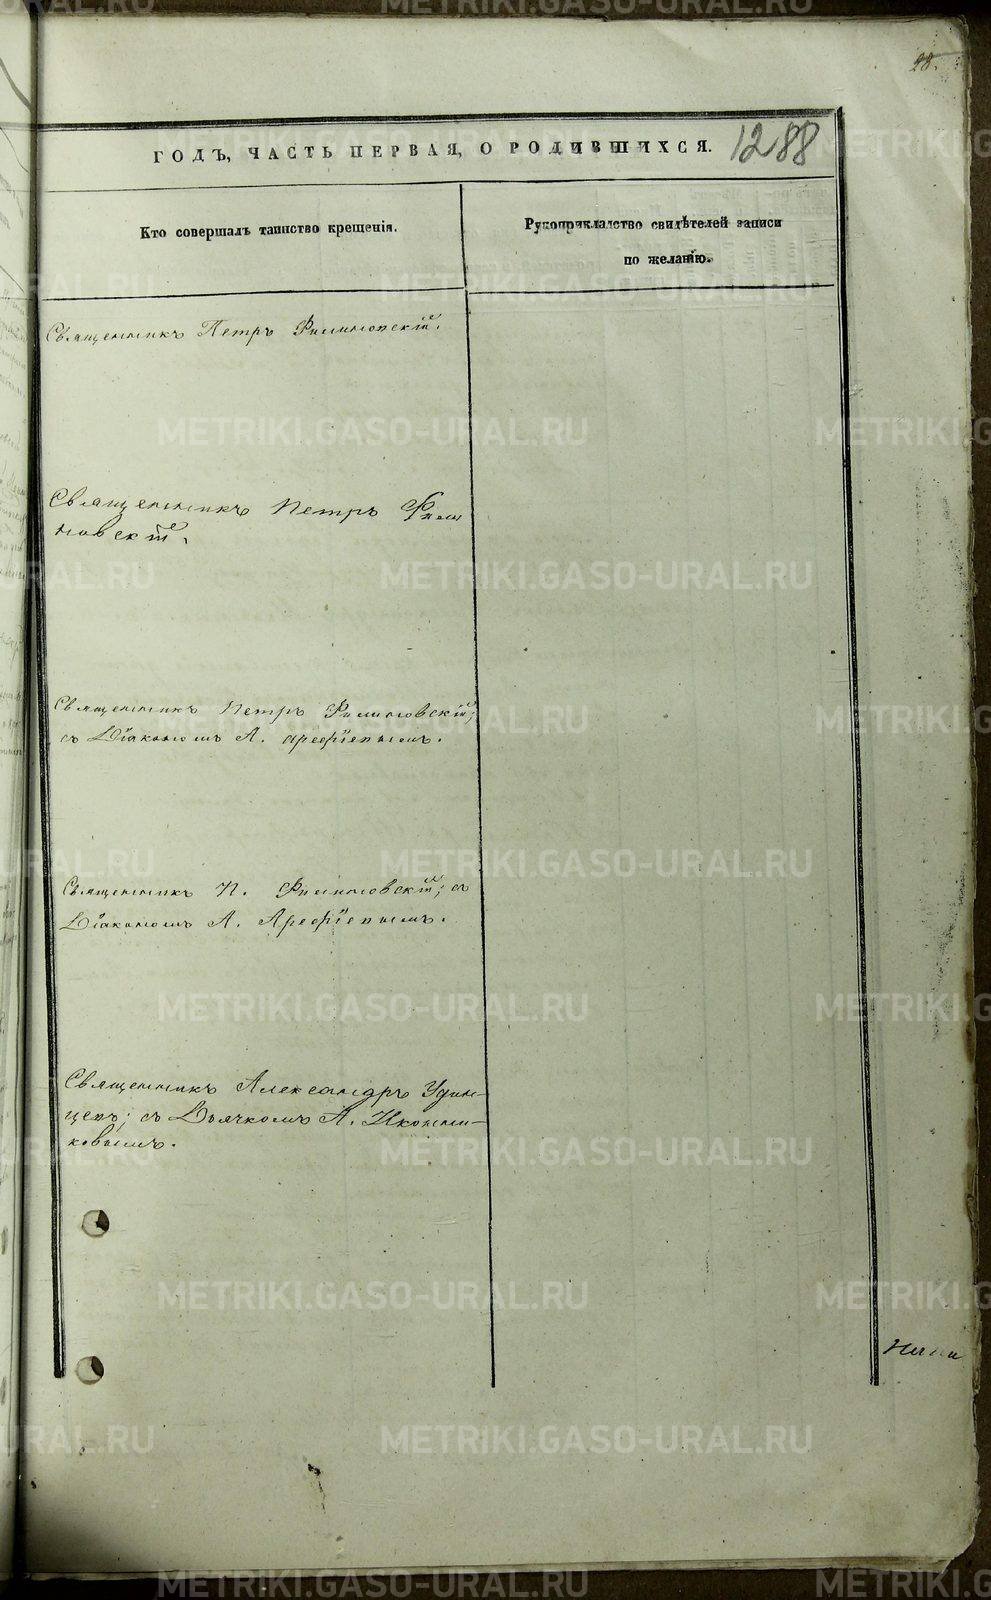 28.
ГОДЪ, ЧАСТЬ ПЕРВАЯ, О РОДИВШИХСЯ. 1288
Кто совершалъ таинство крещенія.
Рукоприкладство свидѣтелей записи
по желанію.
Священникъ Петръ Филиновскій.
Священникъ Петръ Фили
новскій.
Священникъ Петръ Филиновскій;
съ Діакономъ А. Арефіевымъ.
Священникъ П. Филиновскій; съ
Діакономъ А. Арефіевымъ.
Священникъ Александръ Удин-
цевъ; съ Дьячкомъ А. Иконни-
ковымъ.
METRIKI.GASO-URAL.RU